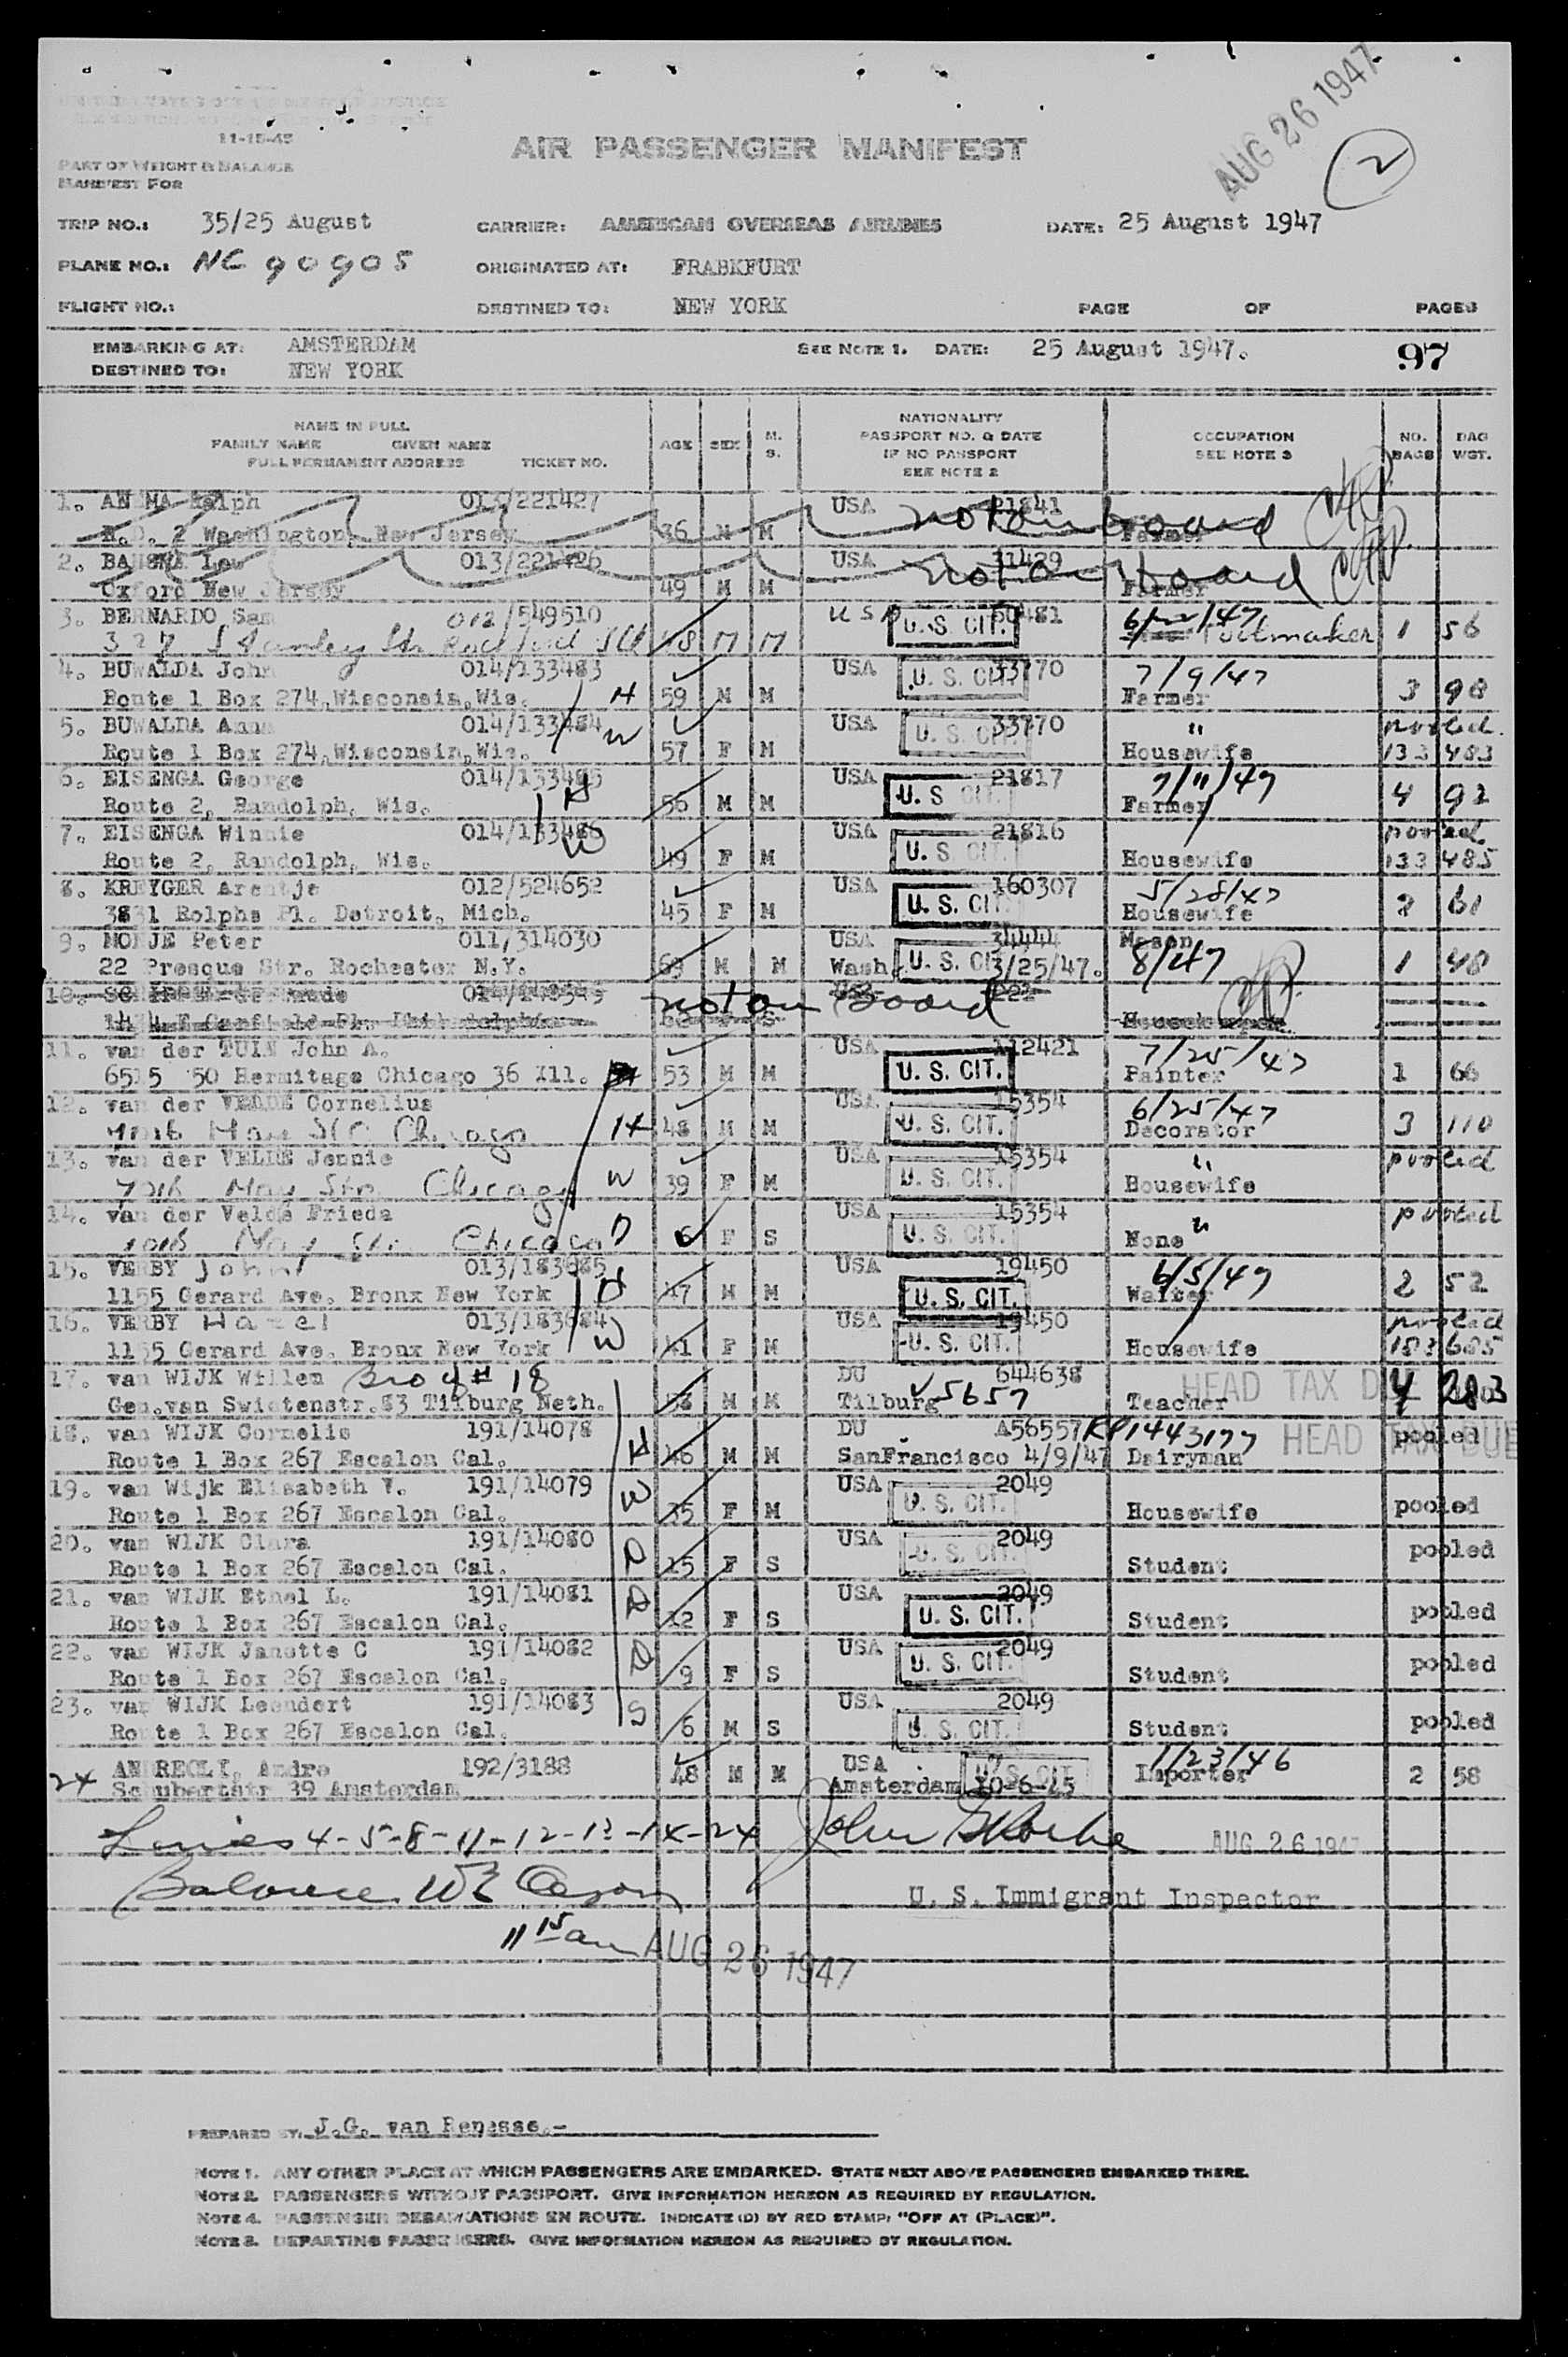 11-15-45
AIR PASSENGER MANIFEST
AUG 26 1947
2
PART OF WEIGHT & BALANCE
MANIFEST FOR
TRIP NO.: 35/25 August CARRIER: AMERICAN OVERSEAS AIRLINES DATE: 25 August 1947
PLANE NO.: NC 90905 ORIGINATED AT: FRABKFURT
FLIGHT NO.: DESTINED TO: NEW YORK PAGE OF PAGES
EMBARKING AT: AMSTERDAM SEE NOTE 1. DATE: 25 August 1947. 97
DESTINED TO: NEW YORK
NAME IN FULL
FAMILY NAME GIVEN NAME
FULL PERMANENT ADDRESS TICKET NO.
AGE SEX M. S.
NATIONALITY
PASSPORT NO. & DATE
IF NO PASSPORT
SEE NOTE 2
OCCUPATION
SEE NOTE 3
NO. BAGS BAG WGT.
1. Ralph 013/221427 USA 21841
2 Washington, New Jersey 36 M M not on board Farmer
2. 013/221426 USA 31429
Oxford New Jersey 49 M M not on board Farmer
3. BERNARDO Sam 012/549510 USA U. S. CIT.
327 Stanley Str Rockford Ill 48 M M Toolmaker 1 56
4. BUWALDA John 014/133483 USA U. S. CIT. 33770 7/9/47
Route 1 Box 274, Wisconsin, Wis. H 59 M M Farmer 3 98
5. BUWALDA Anna 014/133484 USA U. S. CIT. 33770 " pooled
Route 1 Box 274, Wisconsin, Wis. W 57 F M Housewife 133 483
6. EISENGA George 014/133485 USA U. S. CIT. 21817 7/11/47
Route 2, Randolph, Wis. H 56 M M Farmer 4 92
7. EISENGA Winnie 014/133486 USA U. S. CIT. 21816 pooled
Route 2, Randolph, Wis. W 49 F M Housewife 133 485
8. KREYGER Arentje 012/524652 USA U. S. CIT. 160307 5/28/47
3831 Rolphs Pl. Detroit, Mich. 45 F M Housewife 2 61
9. MONJE Peter 011/314030 USA 34444 Mason
22 Presque Str. Rochester N.Y. 63 M M Wash. U. S. CIT. 3/25/47. 8/47 1 48
10. not on board
11. van der TUIN John A. USA 112421 7/25/47
6515 50 Hermitage Chicago 36 Ill. 53 M M U. S. CIT. Painter 1 66
12. van der VELDE Cornelius USA 15354 6/25/47
7016 May Str Chicago H 48 M M U. S. CIT. Decorator 3 110
13. van der VELDE Jennie USA 15354 " pooled
7016 May Str Chicago W 39 F M U. S. CIT. Housewife
14. van der Velde Frieda USA 15354 " pooled
7016 May Str Chicago D 6 F S U. S. CIT. None
15. VERBY John 013/183685 USA 19450 6/5/47
1155 Gerard Ave. Bronx New York H 47 M M U. S. CIT. Waiter 2 52
16. VERBY Hazel 013/183684 USA 19450 pooled
1155 Gerard Ave. Bronx New York W 41 F M U. S. CIT. Housewife 183685
17. van WIJK Willem Bro of # 18 DU 644638 HEAD TAX DUE 4 283
Gen.van Swietenstr.83 Tilburg Neth. M M Tilburg V5657 Teacher
18. van WIJK Cornelis 191/14078 DU A56557 RP1443177 HEAD TAX DUE pooled
Route 1 Box 267 Escalon Cal. H 46 M M SanFrancisco 4/9/47 Dairyman
19. van Wijk Elisabeth V. 191/14079 USA 2049
Route 1 Box 267 Escalon Cal. W 35 F M U. S. CIT. Housewife pooled
20. van WIJK Clara 191/14080 USA 2049
Route 1 Box 267 Escalon Cal. D 15 F S U. S. CIT. Student pooled
21. van WIJK Ethel L. 191/14081 USA 2049
Route 1 Box 267 Escalon Cal. D 12 F S U. S. CIT. Student pooled
22. van WIJK Janette C 191/14082 USA 2049
Route 1 Box 267 Escalon Cal. D 9 F S U. S. CIT. Student pooled
23. van WIJK Leendert 191/14083 USA 2049
Route 1 Box 267 Escalon Cal. S 6 M S U. S. CIT. Student pooled
24 ANDREOLI, Andre 192/3188 USA U. S. CIT. 1/23/46
Schubertstr 39 Amsterdam 48 M M Amsterdam 10-6-45 Importer 2 58
Lines 4-5-8-11-12-13-14-24 John AUG 26 1947
Balance
U. S. Immigrant Inspector
11 15 am AUG 26 1947
PREPARED BY: J.G. van Renesse.-
NOTE 1. ANY OTHER PLACE AT WHICH PASSENGERS ARE EMBARKED. STATE NEXT ABOVE PASSENGERS EMBARKED THERE.
NOTE 2. PASSENGERS WITHOUT PASSPORT. GIVE INFORMATION HEREON AS REQUIRED BY REGULATION.
NOTE 4. PASSENGER DEBARKATIONS EN ROUTE. INDICATE (D) BY RED STAMP: "OFF AT (PLACE)".
NOTE 3. DEPARTING PASSENGERS. GIVE INFORMATION HEREON AS REQUIRED BY REGULATION.